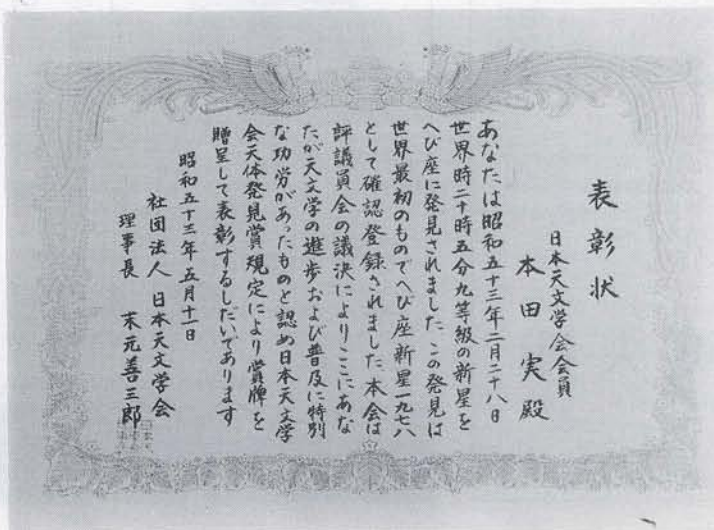 表彰状
日本天文学会会員
本田実殿
あなたは昭和五十三年二月二十八日
世界時二十時五分九等級の新星を
へび座に発見されました この発見は
世界最初のものでへび座新星一九七八
として確認登録されました 本会は
評議員会の議決によりここにあな
たが天文学の進歩および普及に特別
な功労があったものと認め日本天文学
会天体発見賞規定により賞牌を
贈呈して表彰するしだいであります
昭和五十三年五月十一日
社団法人 日本天文学会
理事長 末元善三郎